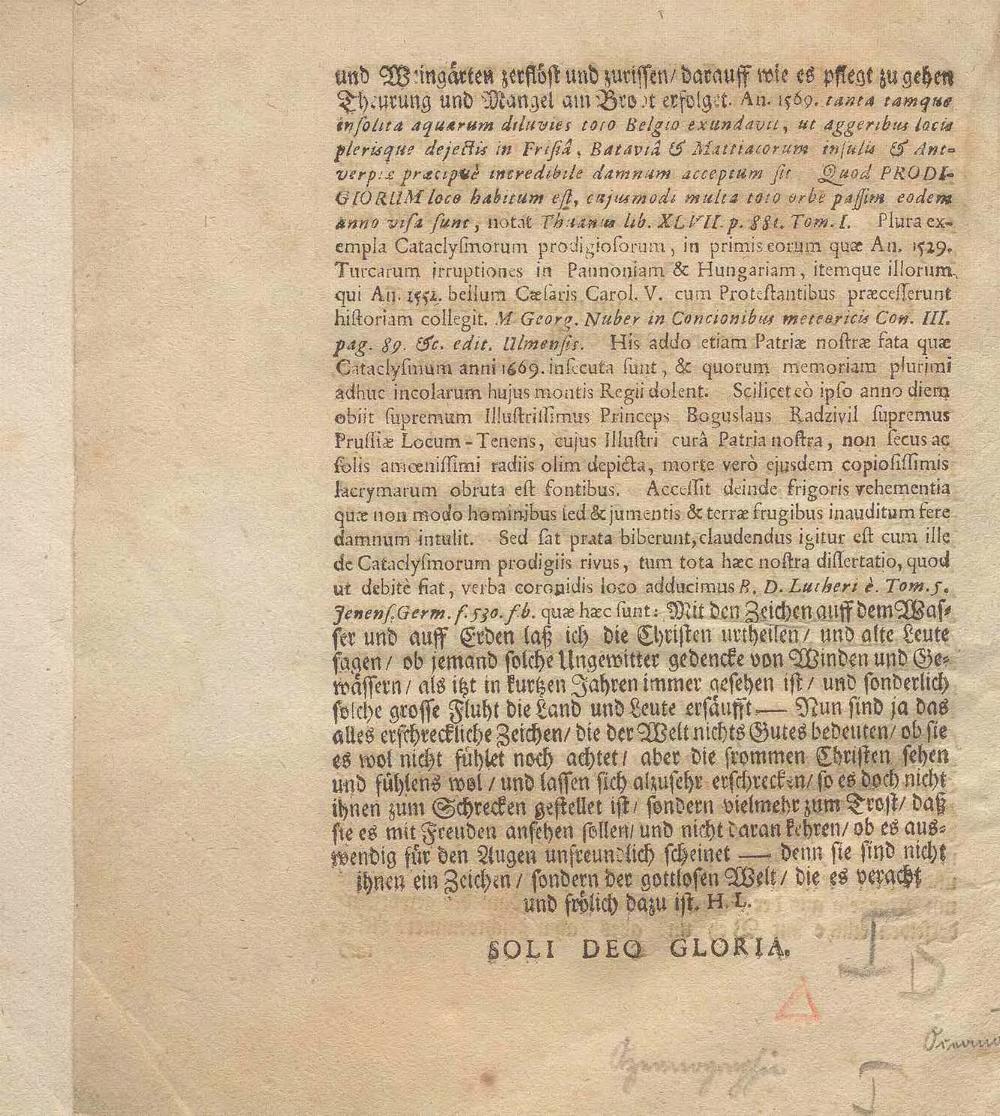 und Weingärten zerflöst und zurissen/ darauff wie es pflegt zu gehen
Theurung und Mangel am Brodt erfolget. An. 1569. tanta tamque
insolita aquarum diluvies toto Belgio exundavit, ut aggeribus locis
plerisque dejectis in Frisiâ, Bataviâ & Mattiacorum insulis & Ant-
verpiæ præcipuè incredibile damnum acceptum sit Quod PRODI-
GIORUM loco habitum est, cujusmodi multa toto orbe passim eodem
anno visa sunt, notat Thuanus lib. XLVII. p. 881. Tom. I. Plura ex-
empla Cataclysmorum prodigiosorum, in primis eorum quæ An. 1529.
Turcarum irruptiones in Pannoniam & Hungariam, itemque illorum,
qui An. 1552. bellum Cæsaris Carol. V. cum Protestantibus præcesserunt
historiam collegit. M Georg. Nuber in Concionibus meteoricis Con. III.
pag. 89. &c. edit. Ulmensis. His addo etiam Patriæ nostræ fata quæ
Cataclysmum anni 1669. insecuta sunt, & quorum memoriam plurimi
adhuc incolarum hujus montis Regii dolent. Scilicet eò ipso anno diem
obiit supremum Illustrissimus Princeps Boguslaus Radzivil supremus
Prussiæ Locum-Tenens, cujus Illustri curâ Patria nostra, non secus ac
solis amœnissimi radiis olim depicta, morte verò ejusdem copiosissimis
lacrymarum obruta est fontibus. Accessit deinde frigoris vehementia
quæ non modo hominibus sed & jumentis & terræ frugibus inauditum fere
damnum intulit. Sed sat prata biberunt, claudendus igitur est cum ille
de Cataclysmorum prodigiis rivus, tum tota hæc nostra dissertatio, quod
ut debitè fiat, verba coronidis loco adducimus B. D. Lutheri è. Tom. 5.
Jenens. Germ. f. 530. f b. quæ hæc sunt: Mit den Zeichen auff dem Was-
ser und auff Erden laß ich die Christen urtheilen/ und alte Leute
sagen/ ob jemand solche Ungewitter gedencke von Winden und Ge-
wässern/ als itzt in kurtzen Jahren immer gesehen ist/ und sonderlich
solche grosse Fluht die Land und Leute ersäufft — Nun sind ja das
alles erschreckliche Zeichen/ die der Welt nichts Gutes bedeuten/ ob sie
es wol nicht fühlet noch achtet/ aber die frommen Christen sehen
und fühlens wol/ und lassen sich alzusehr erschrecken/ so es doch nicht
ihnen zum Schrecken gestellet ist/ sondern vielmehr zum Trost/ daß
sie es mit Freuden ansehen sollen/ und nicht daran kehren/ ob es aus-
wendig für den Augen unfreundlich scheinet — denn sie sind nicht
ihnen ein Zeichen/ sondern der gottlosen Welt/ die es veracht
und frölich dazu ist. H. L.
SOLI DEO GLORIA.
I
D
I